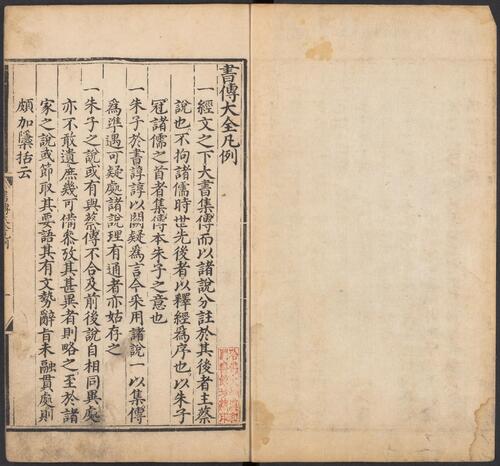 書傳大全凡例
一經文之下大書集傳而以諸說分註於其後者主蔡
說也不拘諸儒時世先後者以釋經為序也以朱子
冠諸儒之首者集傳本朱子之意也
一朱子於書諄諄以闕疑為言今采用諸說一以集傳
為準遇可疑處諸說理有通者亦姑存之
一朱子之說或有與蔡傳不合及前後說自相同異處
亦不敢遺庶幾可備叅攷其甚異者則略之至於諸
家之說或節取其要語其有文勢辭旨未融貫處則
頗加櫽括云